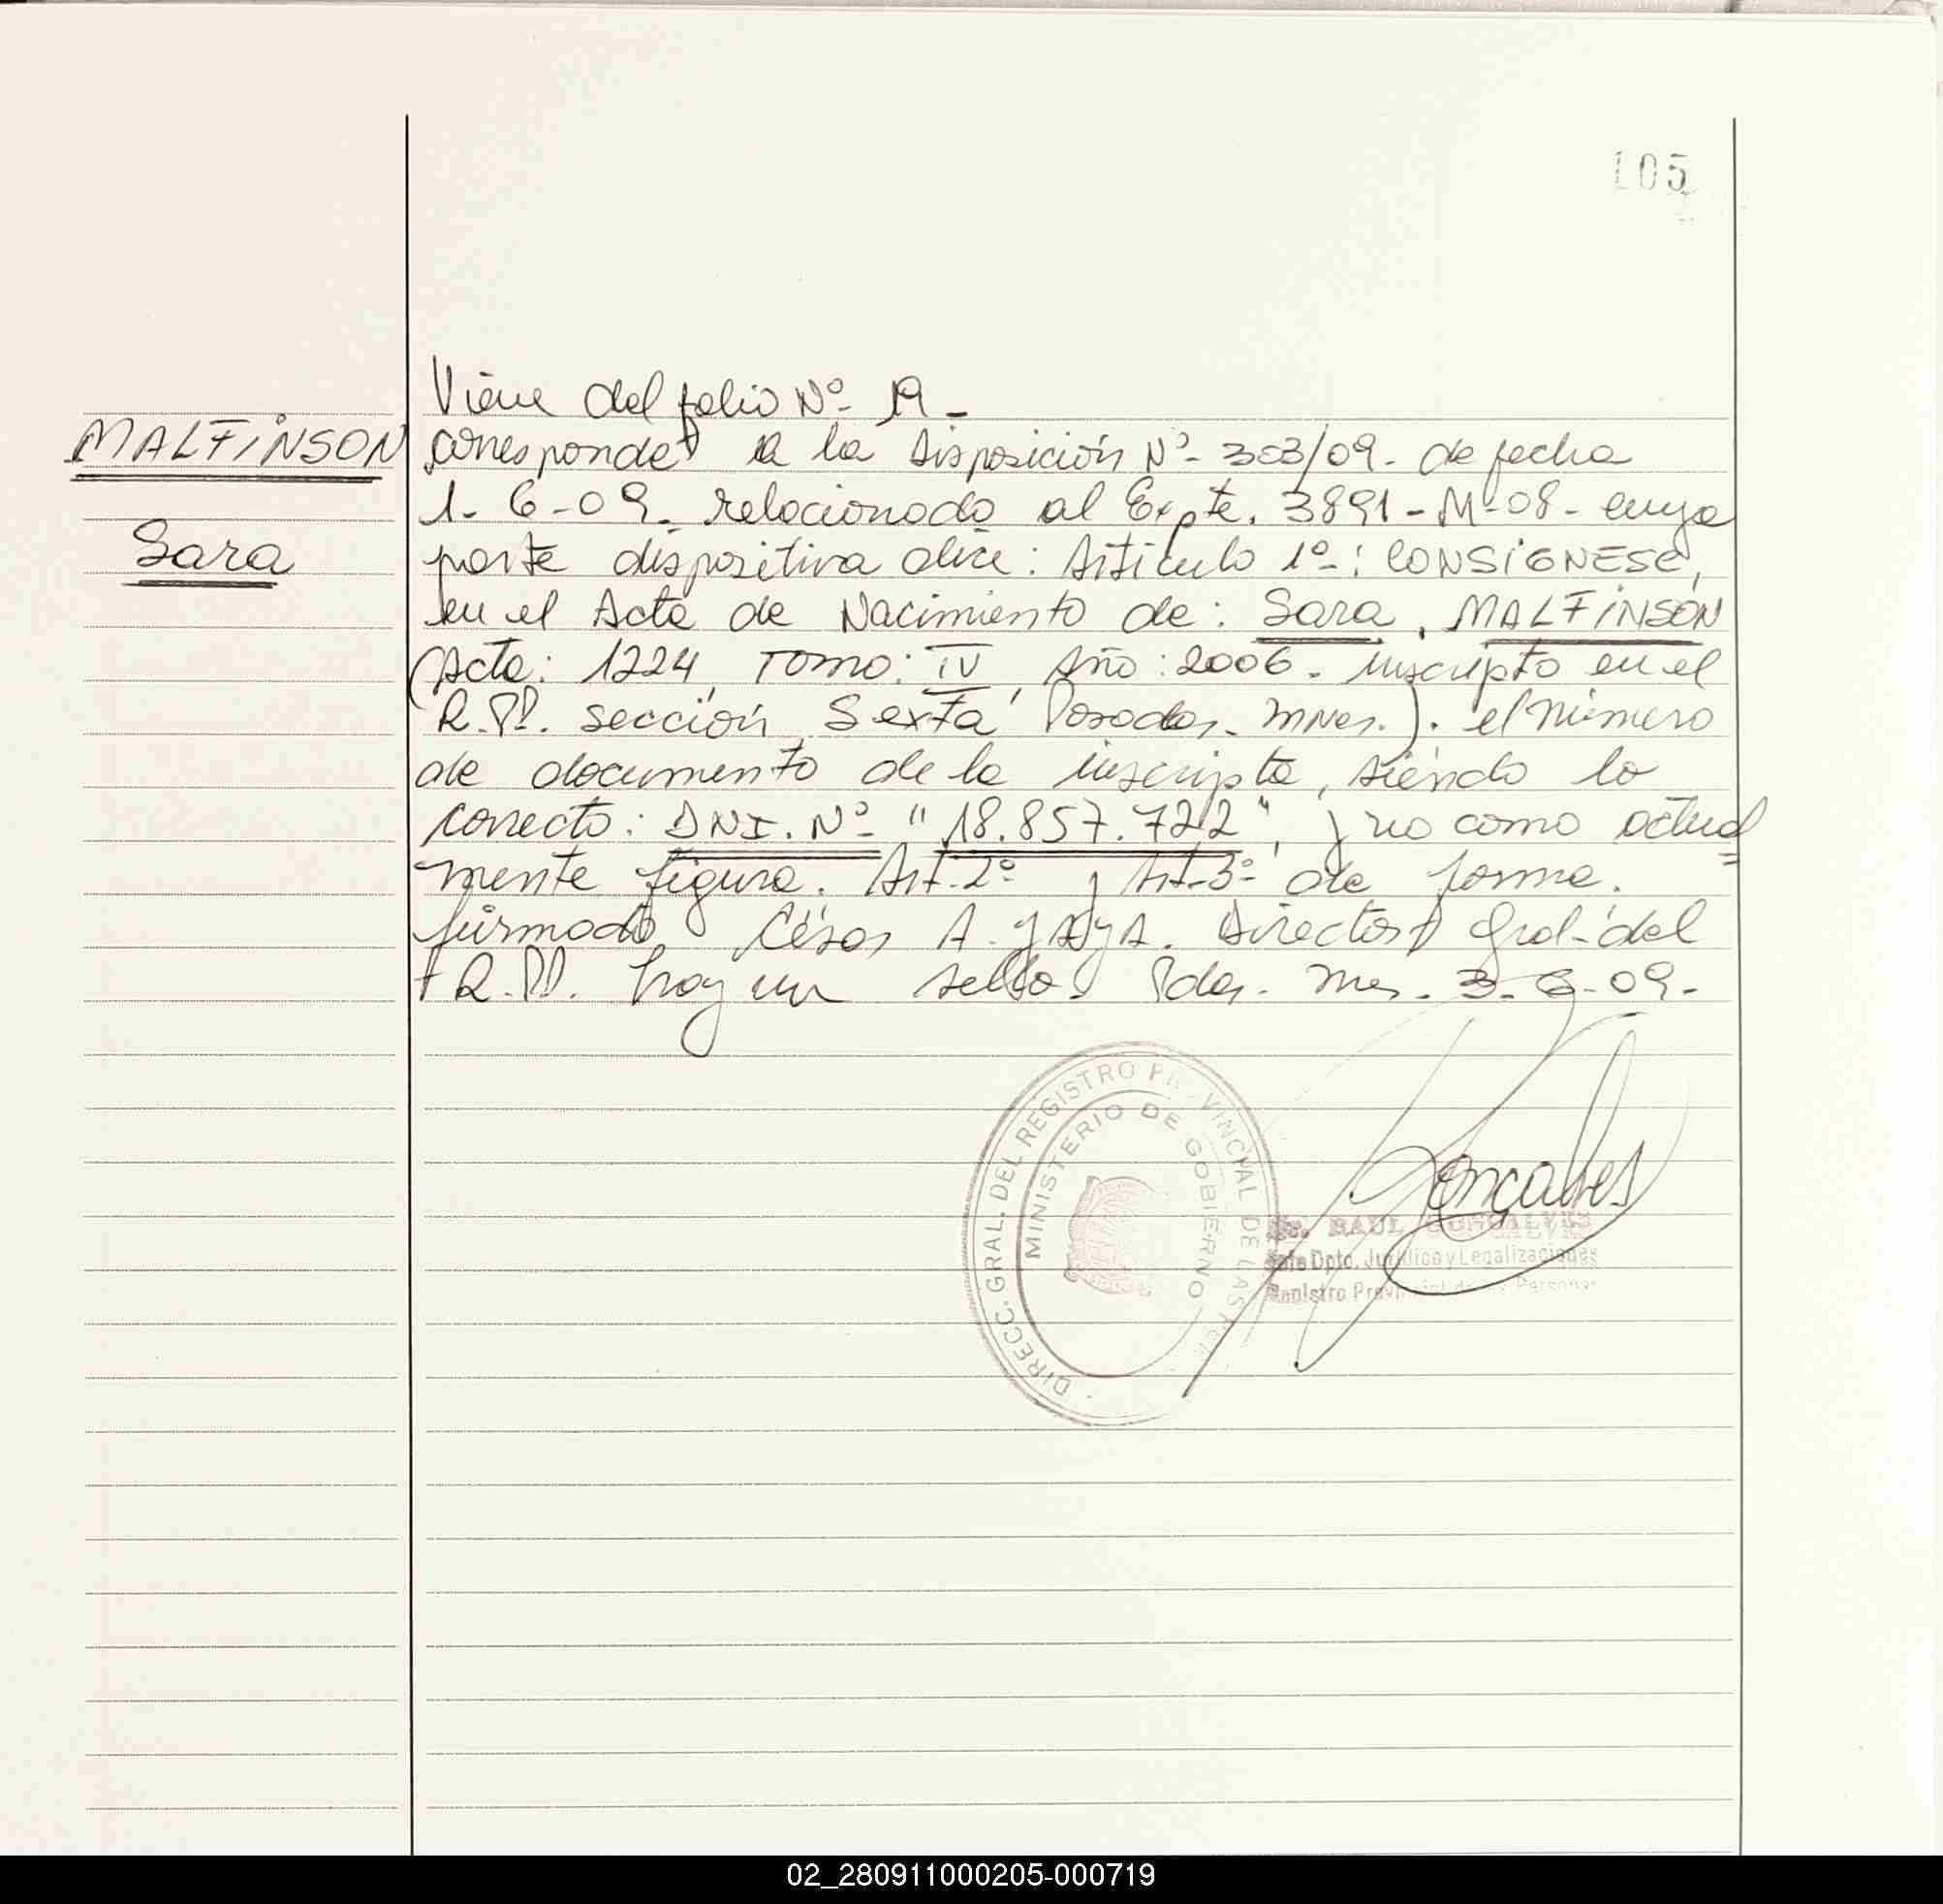 105
Viene del folio Nº- 19-
MALFINSON
Sara
corresponde a la Disposición Nº- 303/09- de fecha
1- 6-09- relacionado al Expte. 3891-M-08- cuya
parte dispositiva dice: Artículo 1º-: CONSIGNESE,
en el Acta de Nacimiento de: Sara, MALFINSON
(Acta: 1224, Tomo: IV, Año: 2006- inscripto en el
R.PP. sección Sexta, Posadas- Mnes.). el número
de documento de la inscripta, siendo lo
correcto: DNI. Nº- "18.857.722", y no como actual
mente figura. Art-2º y Art-3º- de forma.
firmado César A. Director Gral- del
R.PP. hay un sello. Pdas- Mes- 3-6-09-
DIRECC. GRAL. DEL REGISTRO PROVINCIAL DE LAS
MINISTERIO DE GOBIERNO
Gonçalves
RAUL GONÇALVES
Jefe Dpto. Jurídico y Legalizaciones
Registro Provincial de Personas
02_280911000205-000719